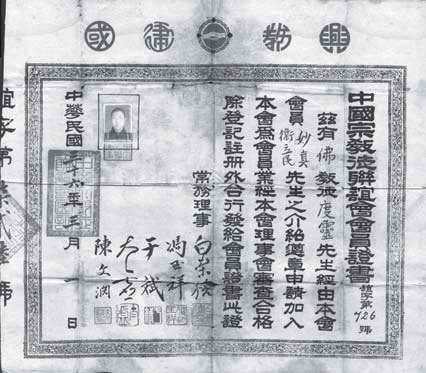 興教建國
中國宗教徒聯誼會會員證書
誼字第726號
茲有佛教徒度靈先生經由本會
會員妙真
衛立民
先生之介紹遵章申請加入
本會為會員業經本會理事會審查合格
除登記註冊外合行發給會員證書此證
常務理事
白崇禧
馮玉祥
于斌
太虛
陳文潤
中華民國三十六年三月 日
誼字第柒貳陸號